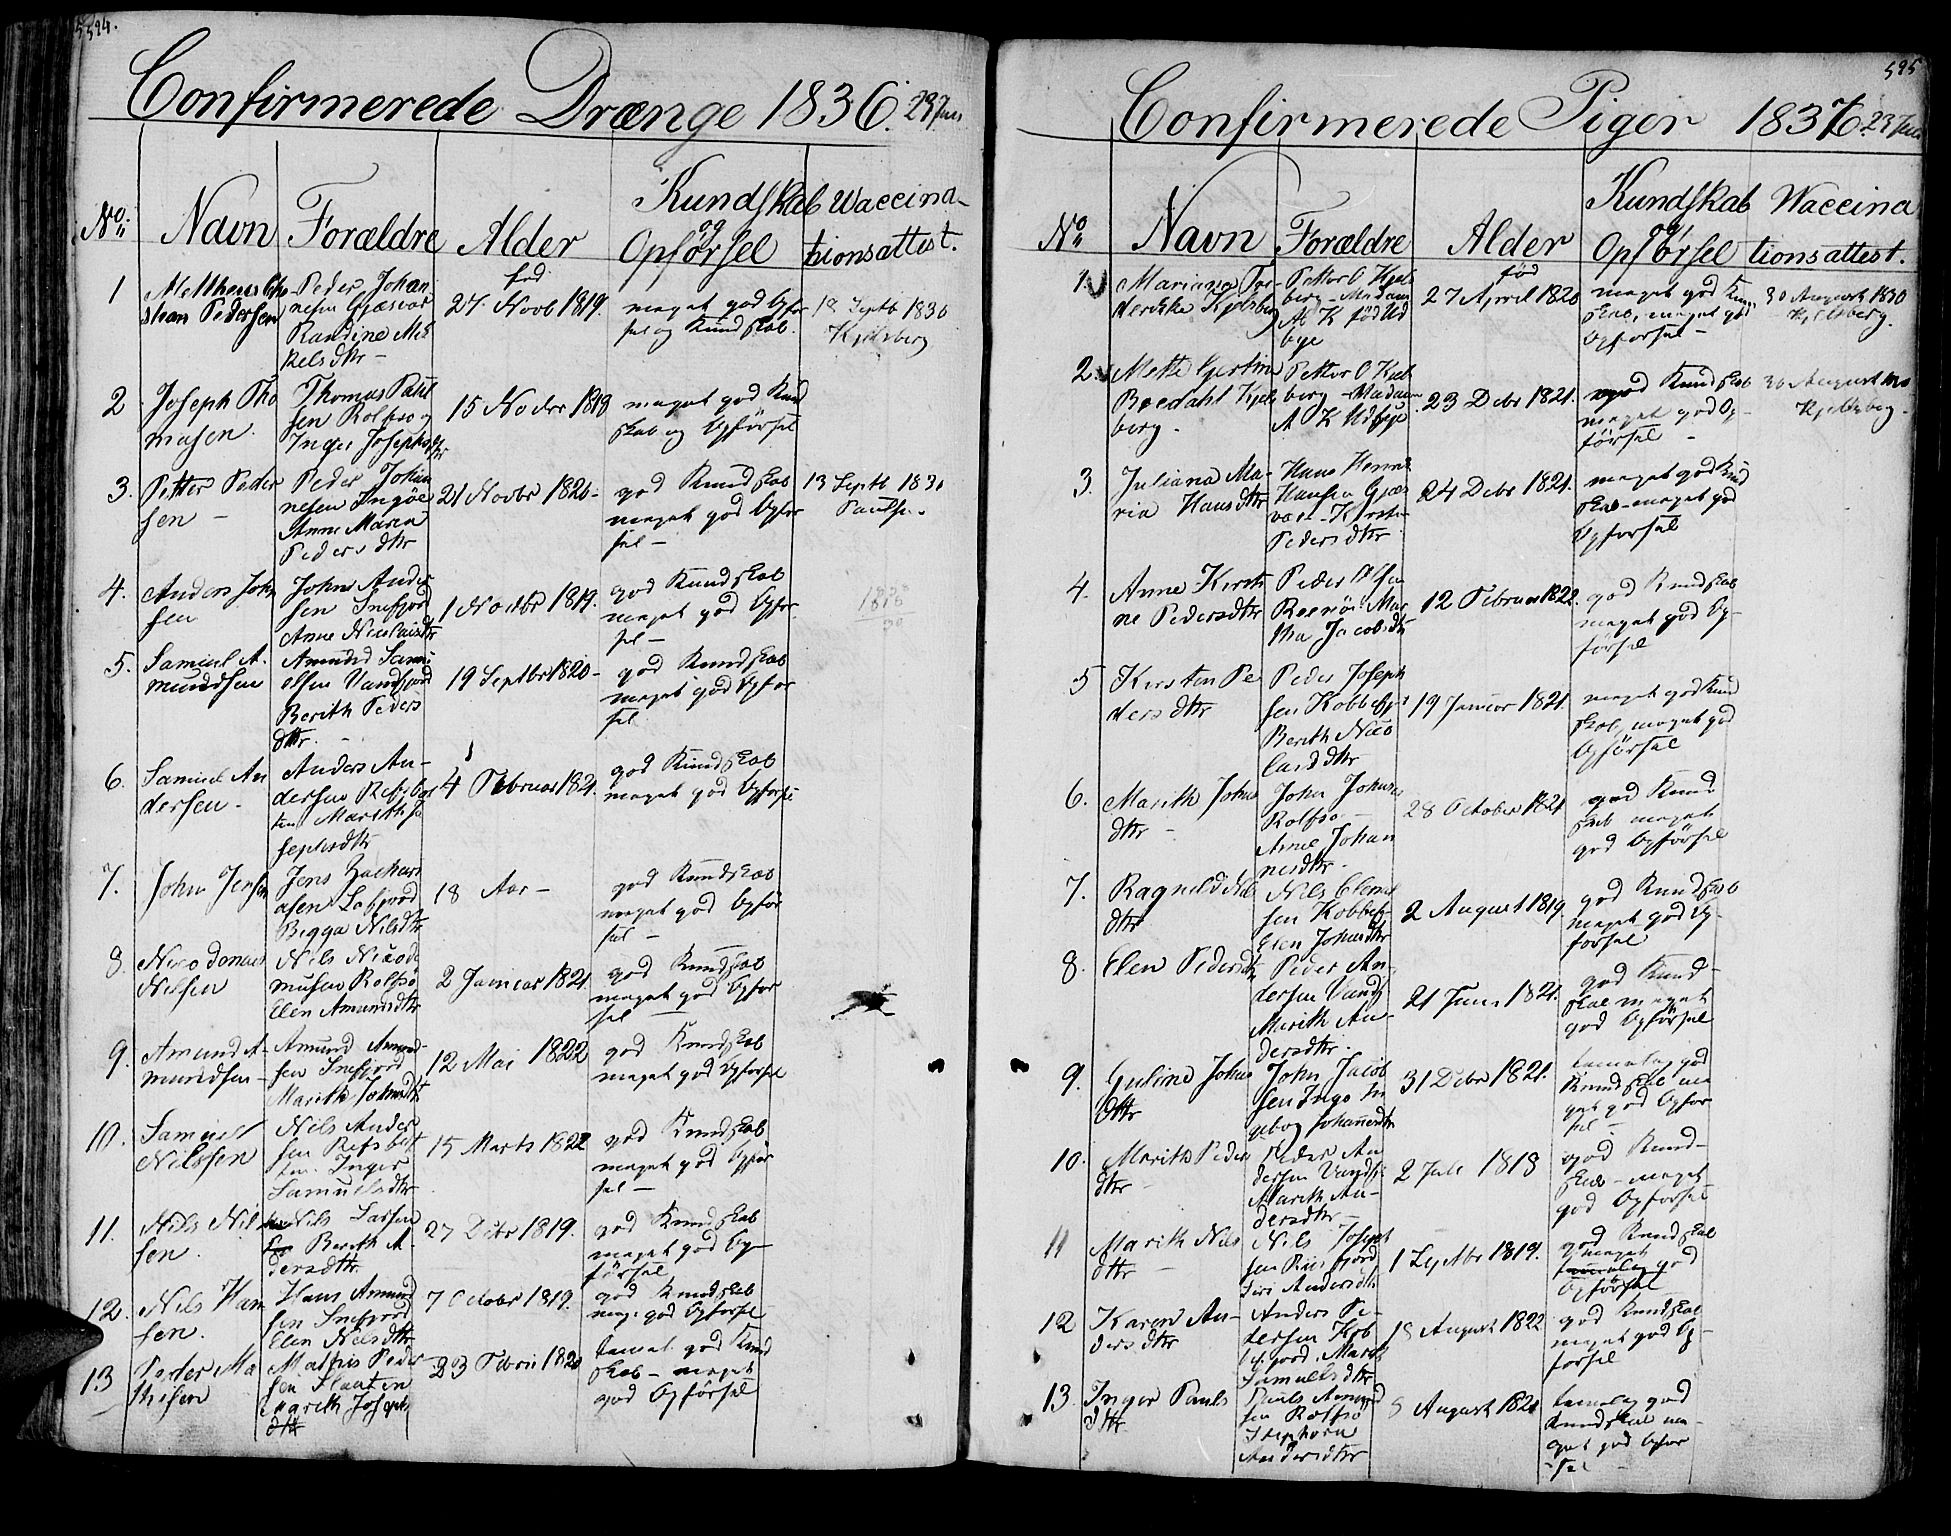 594.
Confirmerede Drænge 1836. 29 Juni
No. Navn Forældre Alder Kundskab og Opførsel Waccinationsattest.
fød
1 Peder Johan
nesen
Randine Mik
kelsdtr
Pedersen
27 Novb 1819.
meget god Opfør
sel og Kundskab.
18 Septb 1830
Kjelsberg
2 Joseph Tho
masen.
Thomas Paul
sen Rolfsø og
Inger Josephsdtr
15 Novbr 1819
meget god Kund
skab og Opførsel
3. Petter Peder
sen –
Peder Johan
nesen Ingøe
Anne Maria
Pedersdtr
21 Novbr 1820 –
god Kundskab
meget god Opfør
sel –
13 Septb 1830
4. Anders John
sen
John Ander
sen Snefjord
Anne Nicolaisdtr
1 Novbr 1819.
god Kundskab
meget god Opfør
sel –
5. Samuel A.
mundsen
Amund Samu
elsen
Berith Peders
dtr. –
19 Septbr 1820 –
god Kundskab
meget god Opfør
sel.
6. Samuel An
dersen –
Anders An –
dersen Refsbot
ten Marith Jo
sephsdtr
4 Februar 1821.
god Kundskab
meget god Opførsel
7. John Jensen
Jens Zachari
asen Lafjord
Bigga Nilsdtr
18 Aar –
god Kundskab
meget god Opfør
sel –
8. Nicodemus
Nilsen
Nils Nicode
musen Rolfsø
Elen Amundsdtr
2 Januar 1821.
god Kundskab
meget god Opfør
sel –
9. Amund A –
mundsen –
Amund Amund –
sen Snefjord
Marith Johnsdtr
12 Mai 1822
god Kundskab
meget god Opførsel
10. Samuel
Nilssen
Nils Ander
sen Refsbot
ten. Inger
Samuelsdtr
15 Marts 1822
god Kundskab
meget god Opfør
sel –
11. Nils Nil
sen.
Nils Larsen
Berith A
dersdtr.
27 Debr 1819.
god Kundskab
meget god Op –
førsel
12. Nils Han
sen.
Hans Amund
sen Snefjord
Elen Nilsdtr
7 Octobr 1819.
god Kundskab
meg. god Opførsel
13 Peder Ma
thisen
Mathis Peder
sen
Marith Josephs
dtr
23 Febru 1820
temel. god Kund
skab – meget
god Opførsel
595
Confirmerede Piger 1836. 29 Juni
No. Navn Forældre Alder Kundskab og Opførsel Waccinationsattest.
fød
1. Mariana
Kjelsberg
Petter O Kjels
berg – Madam
A K fød Ud
bye
27 April 1820
meget god Kund
skab, meget god
Opførsel –
30 August 1830
Kjelsberg.
2. Mette
Kjels
berg.
Petter O Kjels
berg – Madam
A K Udbye
23 Debr 1821.
god Kundskab
meget god Op –
førsel –
30 August 1830
Kjelsberg.
3. Juliana Ma –
ria Hansdtr
Hans Henrik
Hansen
Kirsten
Pedersdtr
24 Debr 1821.
meget god Kund
skab – meget god
Opførsel
4. Anne Kirsti
ne Pedersdtr
Peder Olsen
Mar
tha Jacobsdtr
12 Februar 1822.
god Kundskab
meget god Op –
førsel
5 Kirsten Pe
dersdtr
Peder Joseph
sen
Berith Nico
laisdtr
19 Januar 1821.
meget god Kund
skab, meget god
Opførsel
6. Marith Johns
dtr –
John Johnsen
Rolfsø –
Anne Johan
nesdtr.
28 October 1821
god Kund
skab meget
god Opførsel
7. Ragnild Nils
dtr
Nils Clemet
sen
Elen Johnsdtr
2 August 1819.
god Kundskab
meget god Op –
førsel
8. Elen Pedersdtr
Peder An
dersen
Marith An –
dersdtr.
21 Juni 1821.
god Kund –
skab meget
god Opførsel
9. Guline Johns
dtr
John Jacob
sen Ingø In
geborg Johannesdtr
31 Debr 1821.
temelig god
Kundskab me
get god Opfør
sel –
10. Marith Peders
dtr –
Peder An
dersen
Marith An –
dersdtr –
2 Juli 1818
god Kund –
skab – meget
god Opførsel
11 Marith Nils
dtr –
Nils Joseph
sen
Siri Andersdtr
1 Septbr 1819.
god Kundskab
meget
temelig god
Opførsel
12 Karen An –
dersdtr
Anders Pe –
dersen Kob
befjord. Marit
Samuelsdtr
18 August 1822
god Kundskab
meget god Op –
førsel
13. Inger Pauls
dtr.
Pauls Amund
sen Rolfsø
Andersdtr
8 August 1821
temelig god
Kundskab me –
get god Opfør
– sel –